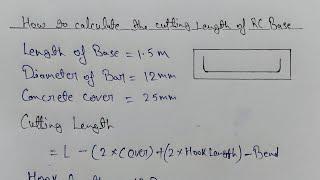 How to calculate the cutting length of RC Base
Length of Base = 1.5 m
Diameter of Bar = 12mm
Concrete cover = 25mm
Cutting Length
= L - (2 × Cover) + (2 × Hook Length) - Bend
Hook